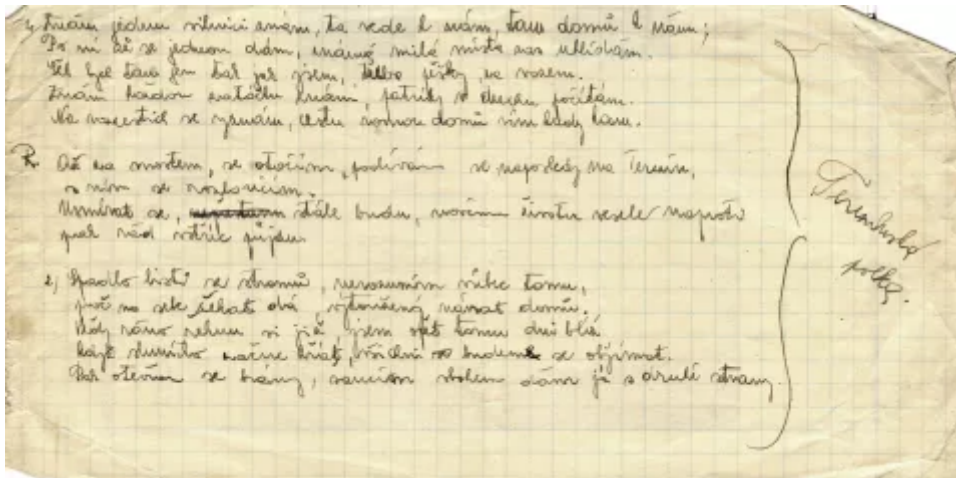 1, Znám jednu silnici znám, ta vede k nám, tam domů k nám;
Po ní až se jednou dám, známá milá místa zas uhlídám.
šel bych tam jen tak jak jsem, třeba pěšky, za vozem.
Znám každou zatáčku známi, patníky v duchu počítám.
Na rozcestích se vyznám, cestu rovnou domů vím kudy tam.
R. Až za mostem, se otočím, podívám se naposledy na Terezín,
s ním se rozloučím.
Usmívat se, stále budu, novému životu vesele naproti
pak rád vstříc půjdu.
2, Spadlo listí se stromů, nerozumím vůbec tomu,
proč na sebe čekat dá, vytoužený návrat domů.
Vždy ráno řeknu si již jsem zas tomu dni blíž.
když sluníčko začne hřát, všichni se budem se objímat.
Pak otevřou se brány, sbohem dám já s druhé strany.
Terezínská
polka.